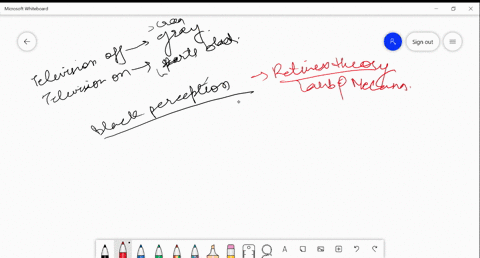 Microsoft Whiteboard
Sign out
Television off → gray.
Television on → parts black.
black perception
→ Retinex theory
Land & McCann.
A